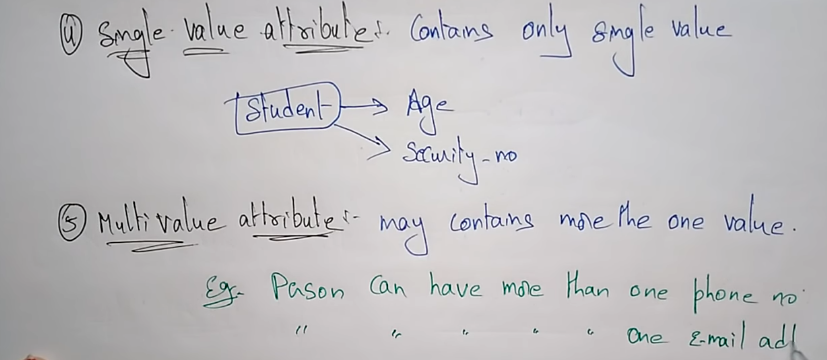 ④ Single value attribute:- Contains only single value
Student → Age
→ Security-no
⑤ Multivalue attribute:- may contains more the one value.
Eg- Person Can have more than one phone no
" " " " " One E-mail add